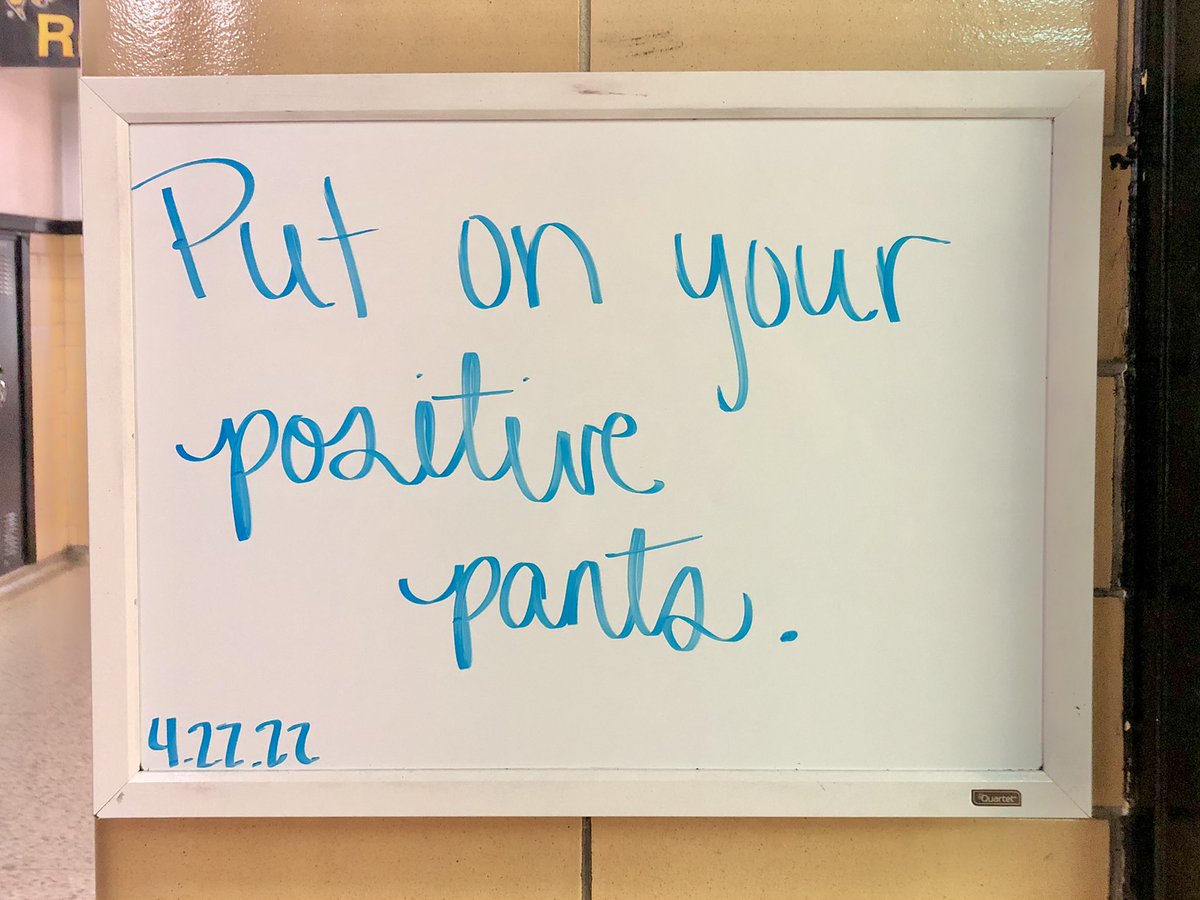 R
Put on your
positive
pants.
4.22.22
Quartet